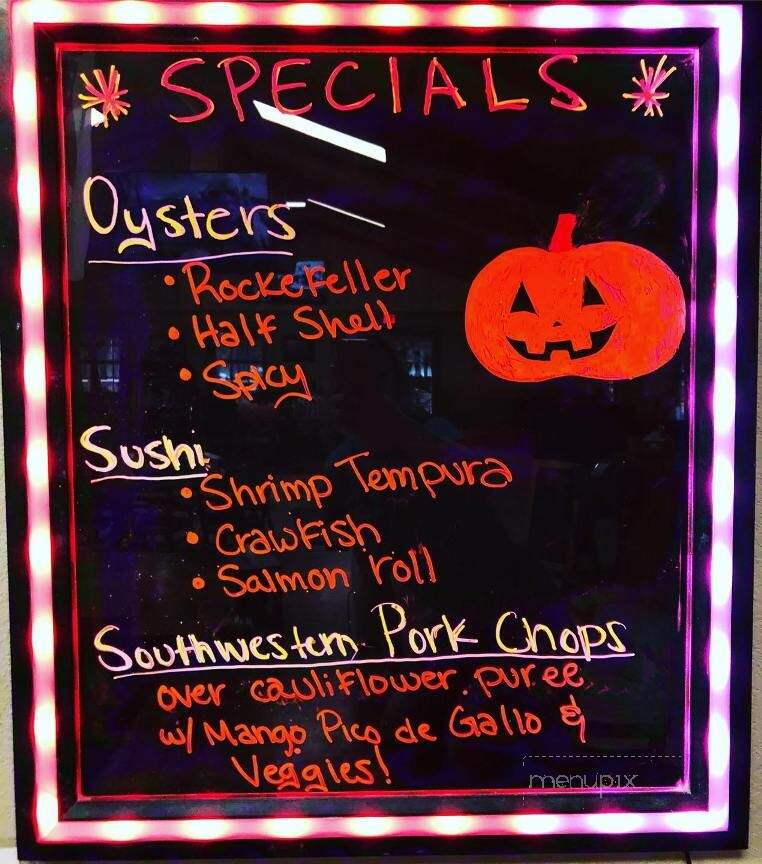 SPECIALS
Oysters
• Rockefeller
• Half Shell
• Spicy
Sushi
• Shrimp Tempura
• Crawfish
• Salmon roll
Southwestern Pork Chops
over cauliflower puree
w/ Mango Pico de Gallo &
Veggies!
menupix